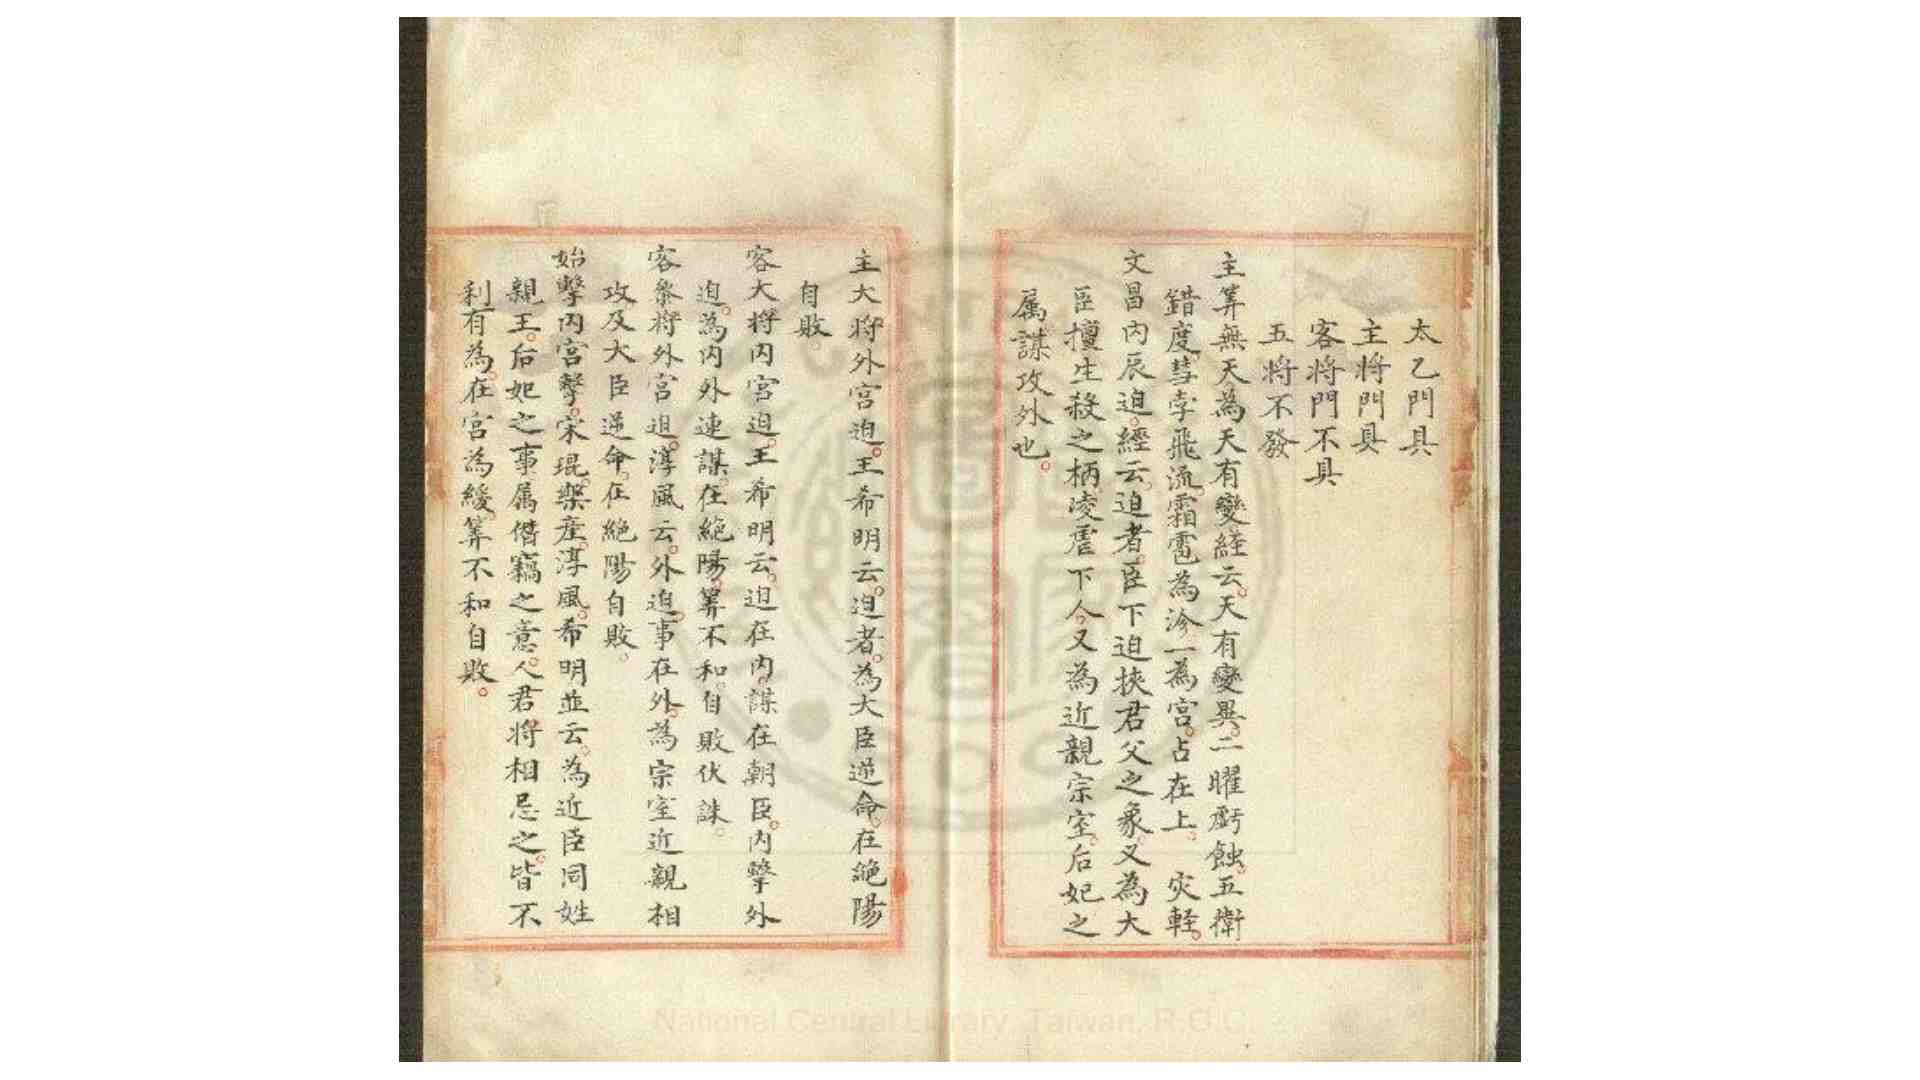 太乙門具
主將門具
客將門不具
五將不發
主筭無天為天有變経云。天有變異。二曜虧蝕。五衛
錯度。彗孛飛流。霜雹為沴。一為宮。占在上。灾軽。
文昌內辰迫。經云。迫者。臣下迫挾君父之象。又為大
臣擅生殺之柄。凌虐下人。又為近親宗室。后妃之
属謀攻外也。
主大將外宮迫。王希明云。迫者。為大臣逆命。在絶陽
自敗。
客大將內宮迫。王希明云。迫在內。謀在朝臣。內擊外
迫。為內外連謀。在絶陽。筭不和。自敗伏誅。
客叅將外宮迫。淳風云。外迫。事在外。為宗室近親相
攻及大臣逆命。在絶陽自敗。
始擊內宮擊。宋琨。樂産。淳風。希明並云。為近臣同姓
親王。后妃之事。属僭竊之意。人君將相忌之。皆不
利有為。在宮為緩。筭不和自敗。
National Central Library, Taiwan, R.O.C.